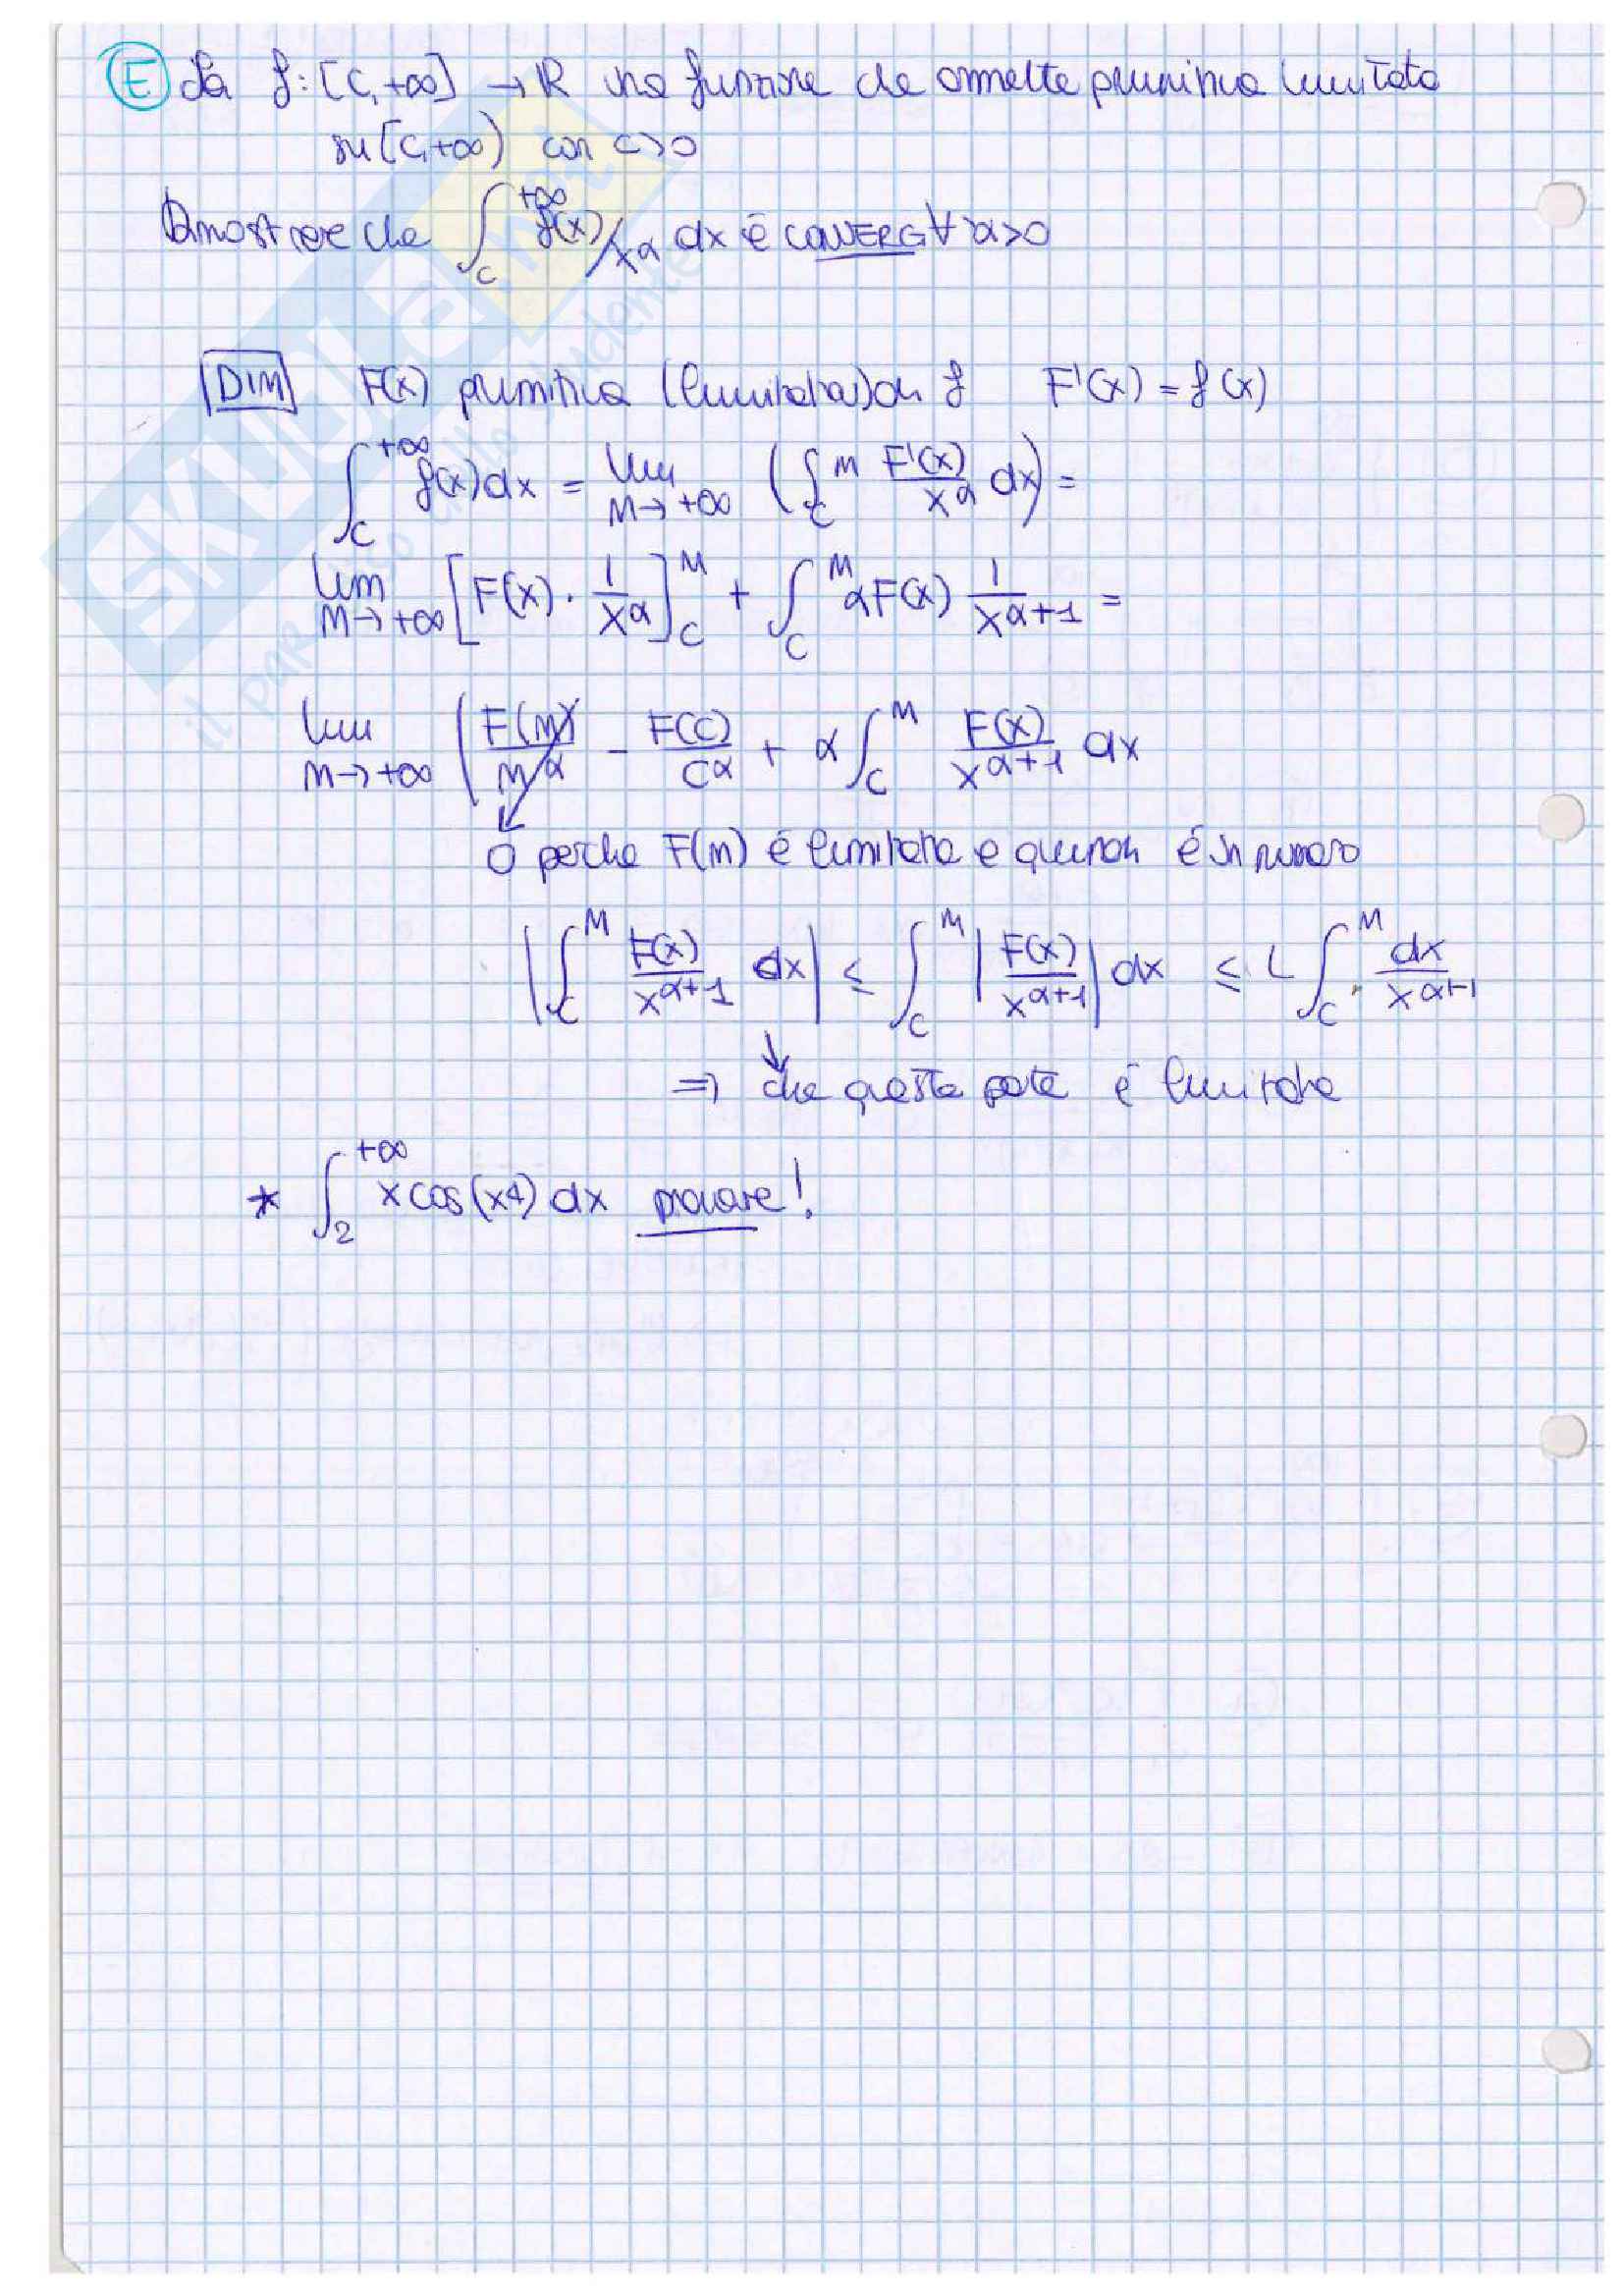 E Sia f: [c, +∞] → ℝ una funzione che ammette primitiva limitata
su [c, +∞) con c>0
Dimostrare che ∫_c^{+∞} f(x)/x^α dx è CONVERG ∀ α>0
DIM F(x) primitiva (limitata) di f F'(x) = f(x)
∫_c^{+∞} f(x)dx = lim_{M→+∞} (∫_c^M F'(x)/x^α dx) =
lim_{M→+∞} [F(x) · 1/x^α]_c^M + ∫_c^M αF(x) 1/x^{α+1} =
lim_{M→+∞} ( F(M)/M^α - F(c)/c^α + α ∫_c^M F(x)/x^{α+1} dx
0 perche F(M) è limitata e quindi è un numero
|∫_c^M F(x)/x^{α+1} dx| ≤ ∫_c^M |F(x)/x^{α+1}| dx ≤ L ∫_c^M dx/x^{α+1}
⇒ che questa parte è limitata
* ∫_2^{+∞} x cos(x^4) dx provare!
SKUOLA.net
il paradiso dello studente